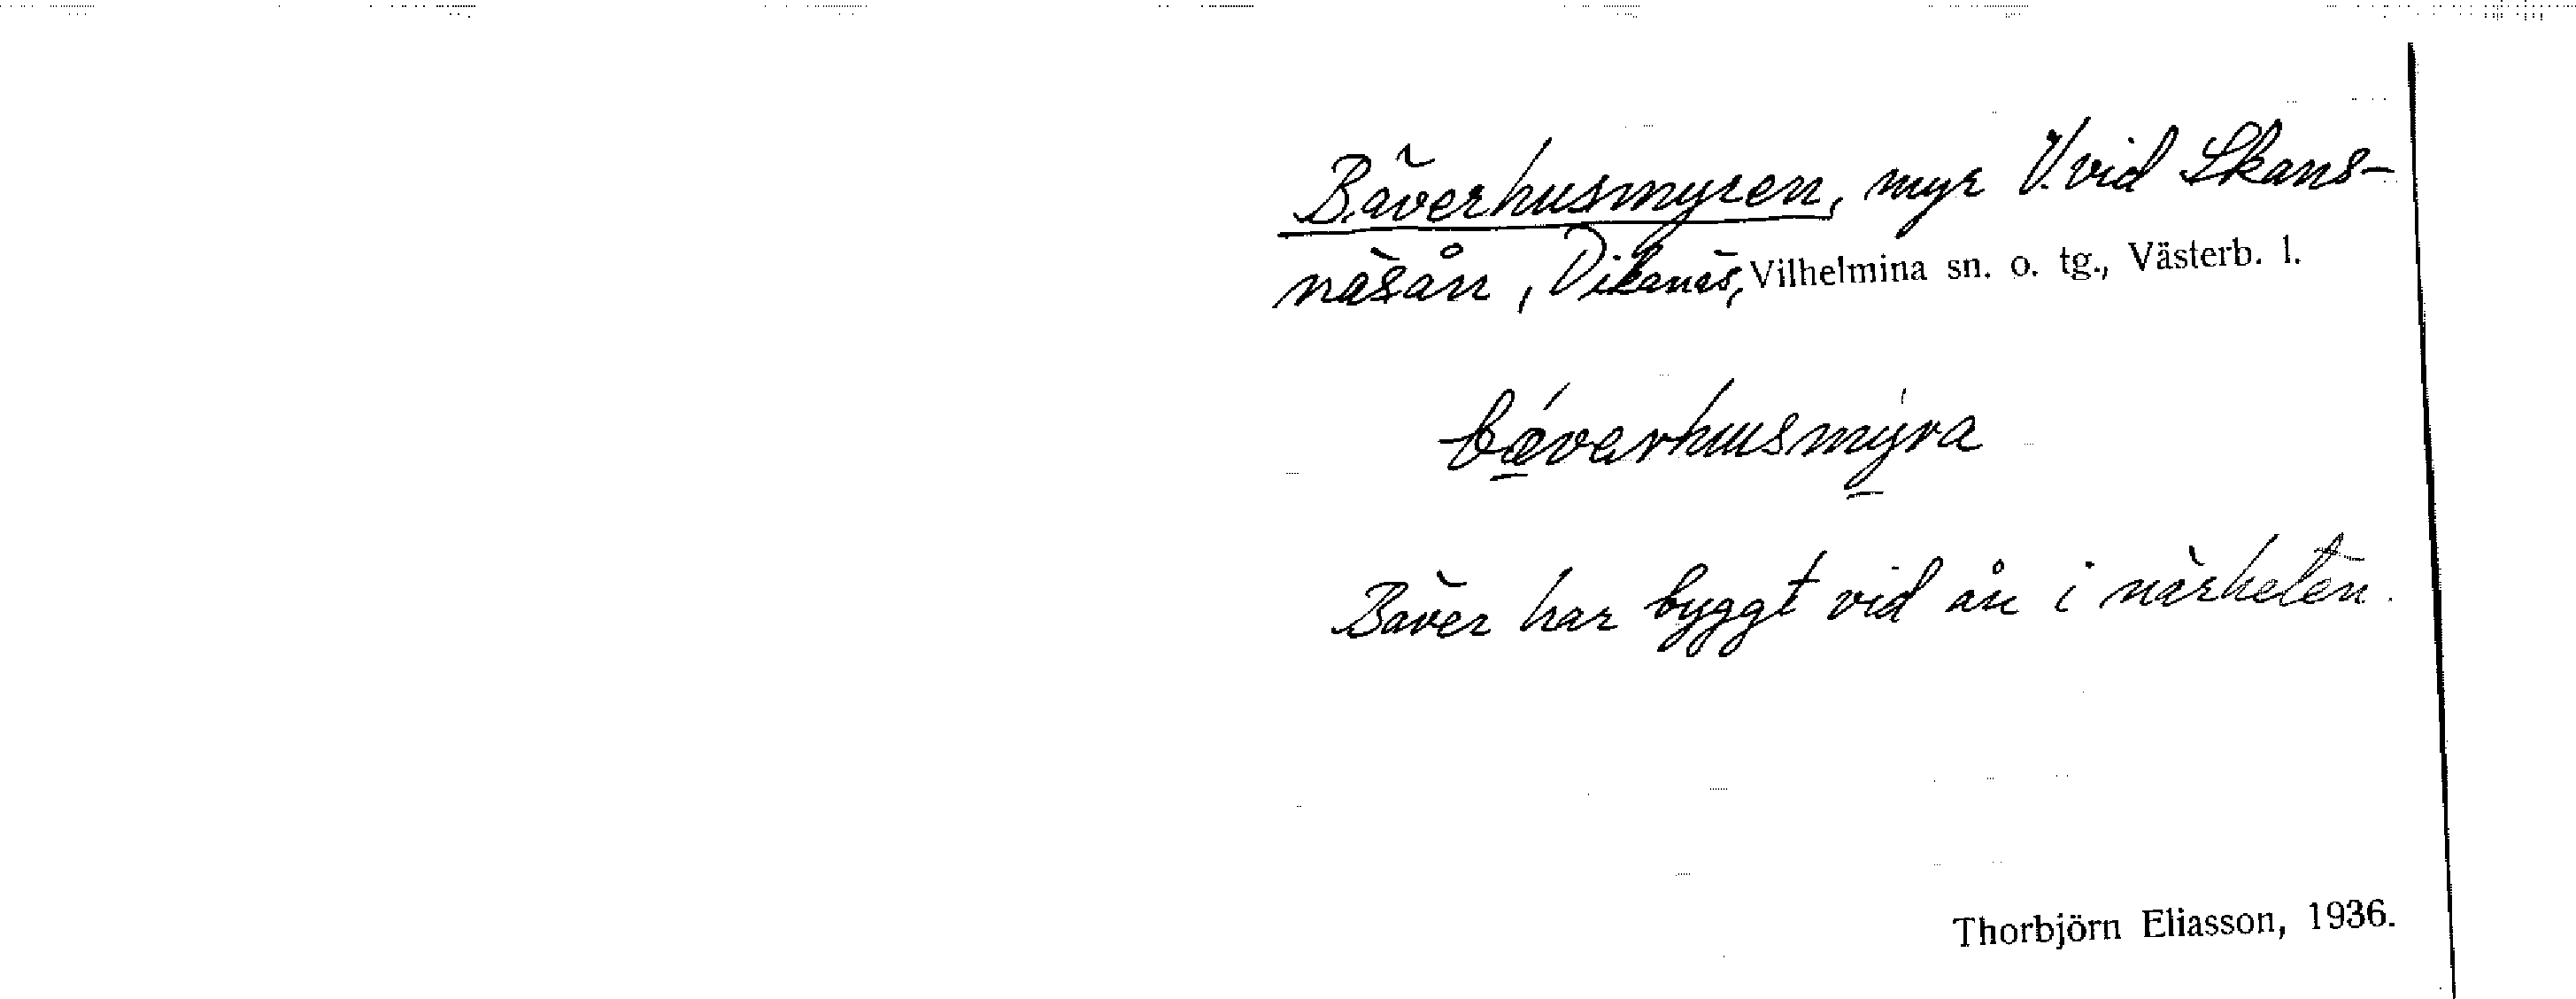 Bäverhusmyren, myr V. vid Skans-
näsån, Dikanäs, Vilhelmina sn. o. tg., Västerb. l.
bǽ̲verhusmy̲̍ra
Bäver har byggt vid ån i närheten.
Thorbjörn Eliasson, 1936.